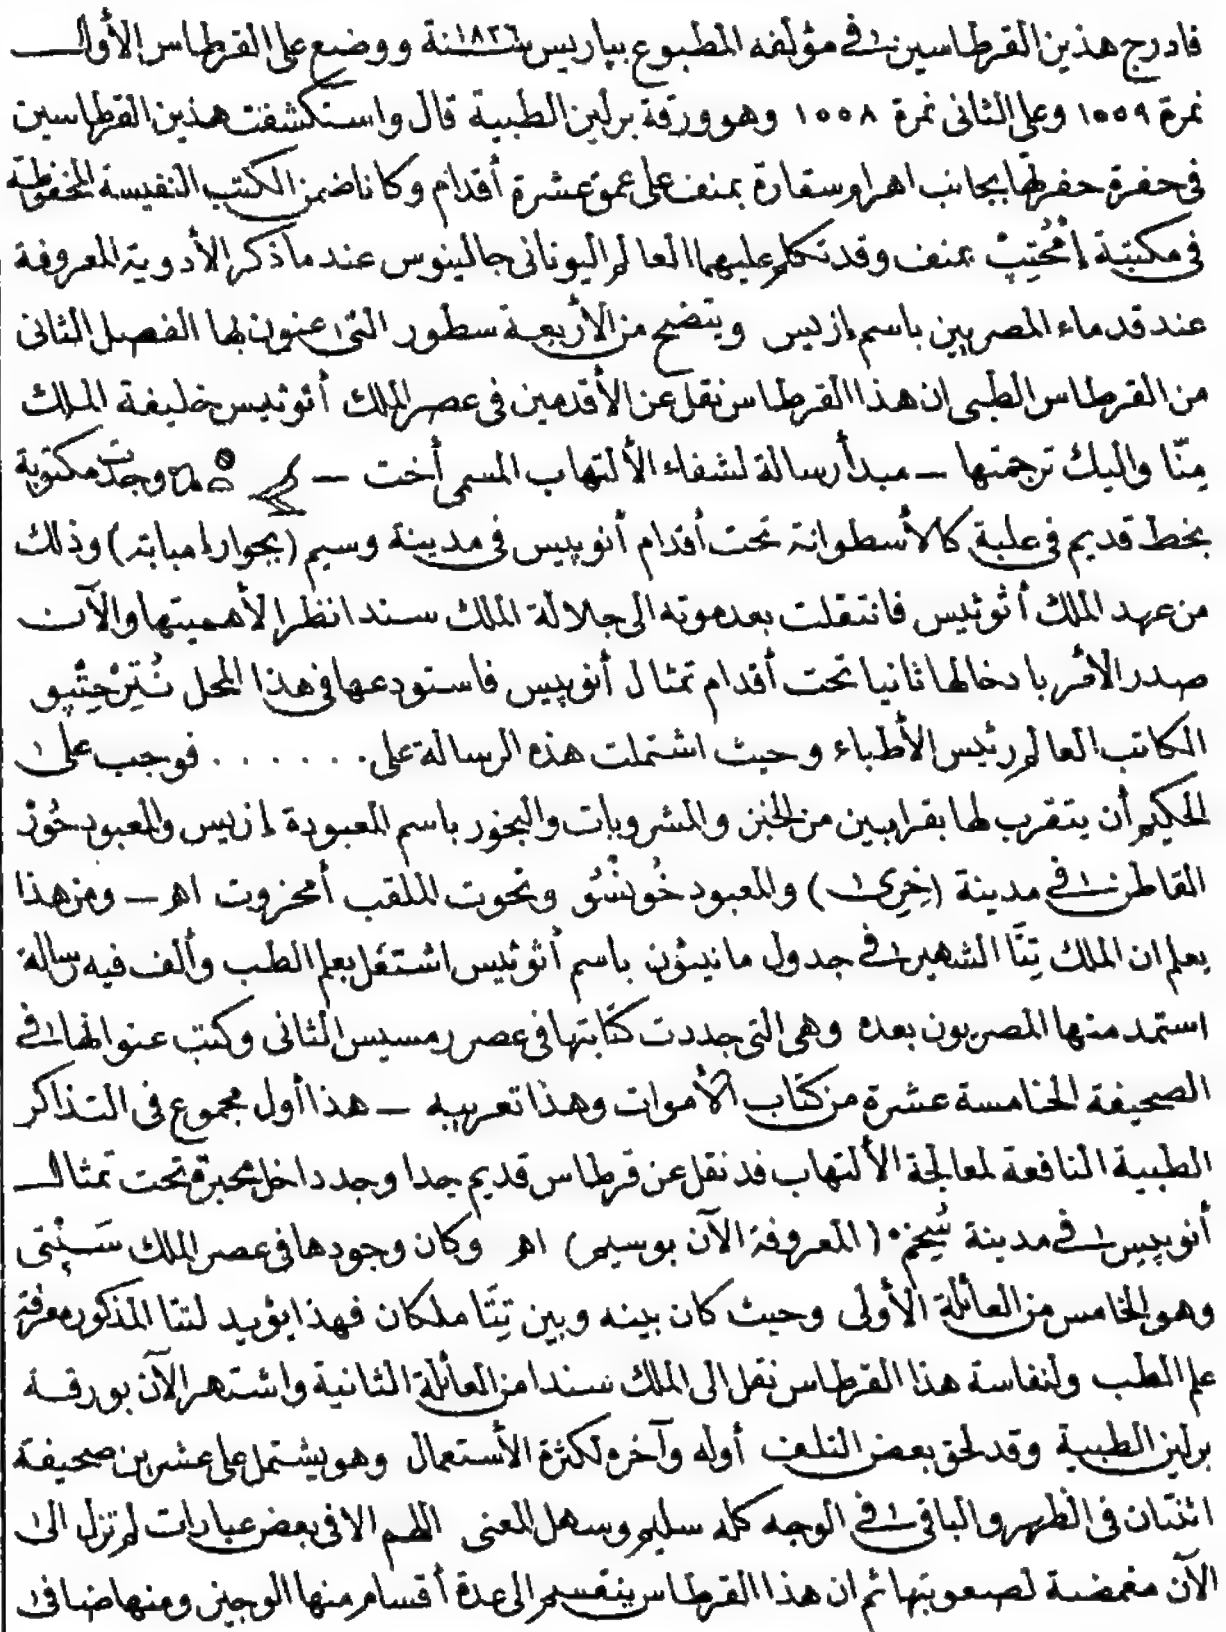 فادرج هذين القرطاسين في مؤلفه المطبوع بباريس سنة ١٨٢٦ ووضع على القرطاس الأول
نمرة ١٥٥٩ وعلى الثانى نمرة ١٥٥٨ وهو ورقة برلين الطبية قال واستكشفت هذين القرطاسين
فى حفرة حفرتها بجانب اهرام سقارة بمنف على عمق عشرة أقدام وكانا ضمن الكتب النفيسة المحفوظة
فى مكتبة إمحُتِپْ بمنف وقد تكلم عليهما العالم اليونانى جالينوس عند ماذكر الأدوية المعروفة
عند قدماء المصريين باسم إزيس ويتضح من الأربعة سطور التى عنون لها الفصل الثانى
من القرطاس الطبى ان هذا القرطاس نقل عن الأقدمين فى عصر الملك أثوثيس خليفة الملك
مِنّا واليك ترجمتها — مبدأ رسالة لشفاء الألتهاب المسمى أخت — وجدت مكتوبة
بخط قديم فى علبة كالأسطوانة تحت أقدام أنوبيس فى مدينة وسيم (بجوار إمبابة) وذلك
من عهد الملك أثوثيس فانتقلت بعد موته الى جلالة الملك سندا نظرا لأهميتها والآن
صدر الأمر بادخالها ثانيا تحت أقدام تمثال أنوبيس فاستودعها فى هذا المحل نُتِرْحِتْپو
الكاتب العالم رئيس الأطباء وحيث اشتملت هذه الرسالة على . . . . . . فوجب على
الحكيم أن يتقرب لها بقرابين من الخبز والمشروبات والبخور باسم المعبودة إزيس والمعبود حُوْر
القاطن فى مدينة (خِرِى) والمعبود خُونْسُو وتحوت الملقب أمخروت اهـ — ومن هذا
يعلم ان الملك تِتَّا الشهير فى جدول مانيثون باسم أثوثيس اشتغل بعلم الطب وألف فيه رسالة
استمد منها المصريون بعده وهى التى جددت كتابتها فى عصر رمسيس الثانى وكتب عنوانها فى
الصحيفة الخامسة عشرة من كتاب الأموات وهذا تعريبه — هذا أول مجموع فى التذاكر
الطبية النافعة لمعالجة الألتهاب قد نقل عن قرطاس قديم جدا وجد داخل محبرة تحت تمثال
أنوبيس فى مدينة سُيخم (المعروفة الآن بوسيم) اهـ وكان وجودها فى عصر الملك سَپْتِى
وهو الخامس من العائلة الأولى وحيث كان بينه وبين تِتَّا ملكان فهذا يؤيد لتتا المذكور معرفة
علم الطب ولنفاسة هذا القرطاس نقل الى الملك سندا من العائلة الثانية واشتهر الآن بورقة
برلين الطبية وقد لحق بعض التلف أوله وآخره لكثرة الأستعمال وهو يشتمل على عشرين صحيفة
اثنتان فى الظهر والباقى فى الوجه كله سليم وسهل المعنى اللهم الا فى بعض عبارات لم تزل الى
الآن مغمضة لصعوبتها ثم ان هذا القرطاس ينقسم الى عدة أقسام منها الوجيز ومنها ضافى